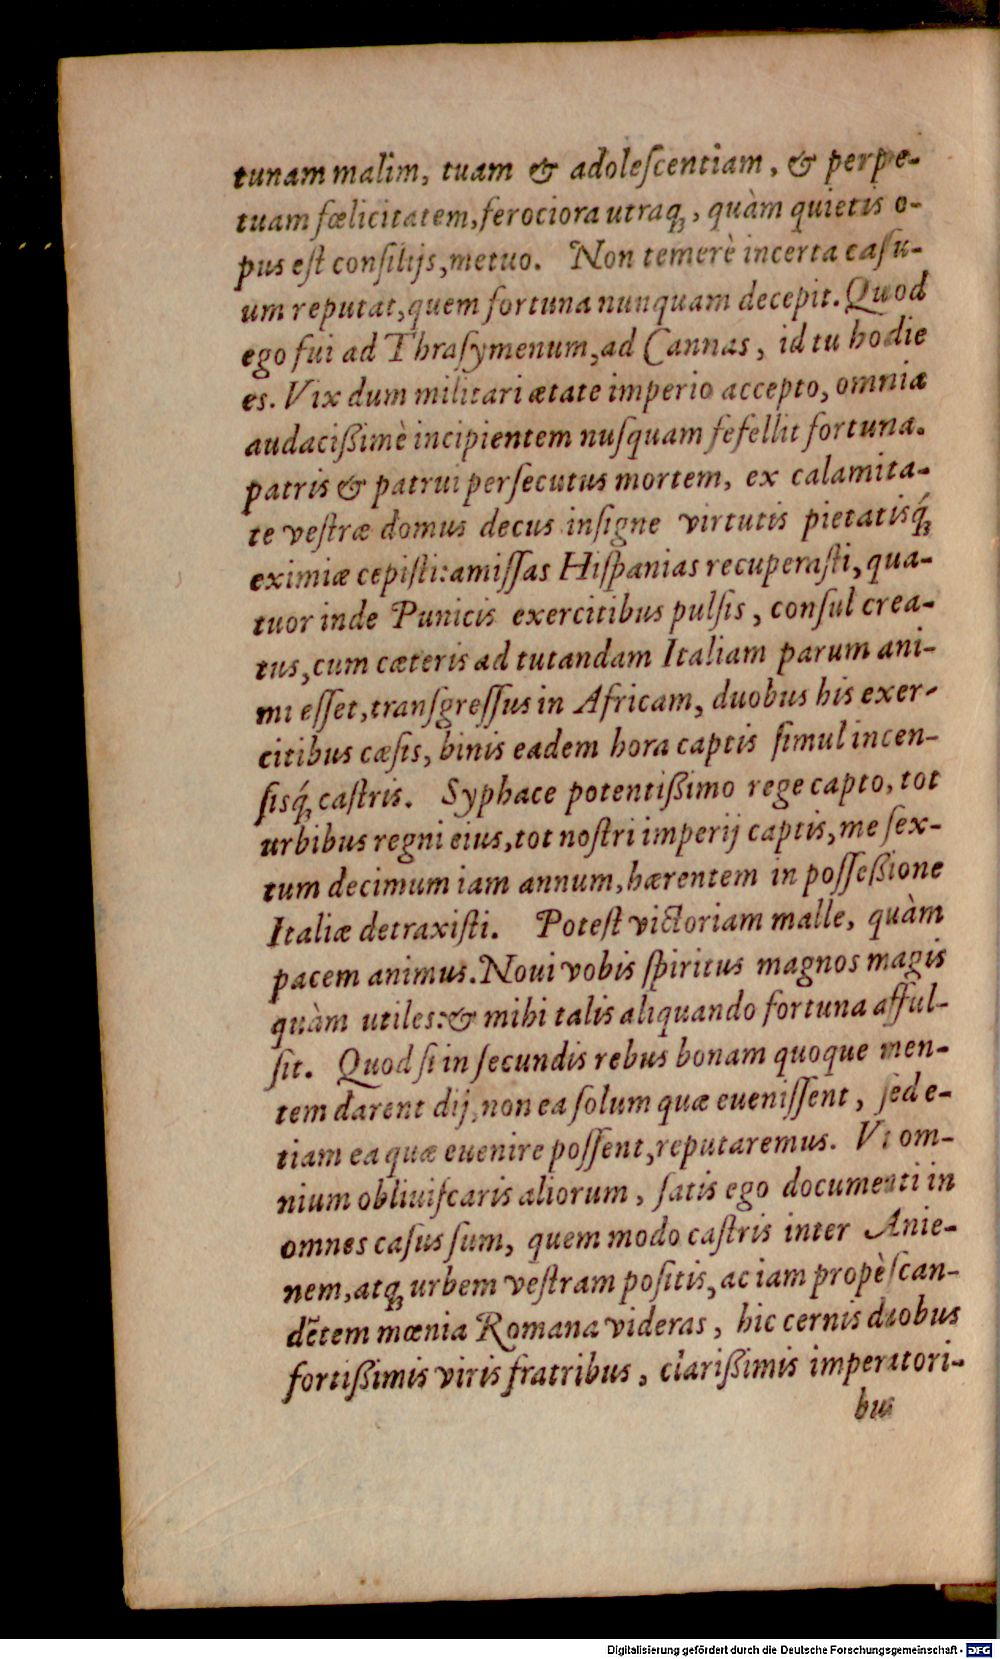 tunam malim, tuam & adoleſcentiam, & perpe-
tuam fœlicitatem, ferociora utraq;, quàm quietis o-
pus eſt conſilijs, metuo. Non temerè incerta caſu-
um reputat, quem fortuna nunquam decepit. Quod
ego fui ad Thraſymenum, ad Cannas, id tu hodie
es. Vix dum militari ætate imperio accepto, omnia
audacißimè incipientem nuſquam fefellit fortuna.
patris & patrui perſecutus mortem, ex calamita-
te veſtræ domus decus inſigne virtutis pietatisq́;
eximiæ cepiſti: amiſſas Hiſpanias recuperaſti, qua-
tuor inde Punicis exercitibus pulſis, conſul crea-
tus, cum cæteris ad tutandam Italiam parum ani-
mi eſſet, tranſgreſſus in Africam, duobus his exer-
citibus cæſis, binis eadem hora captis ſimul incen-
ſisq́; caſtris. Syphace potentißimo rege capto, tot
urbibus regni eius, tot noſtri imperij captis, me ſex-
tum decimum iam annum, hærentem in poſſeßione
Italiæ detraxiſti. Poteſt victoriam malle, quàm
pacem animus. Noui vobis ſpiritus magnos magis
quàm utiles: & mihi talis aliquando fortuna afful-
ſit. Quod ſi in ſecundis rebus bonam quoque men-
tem darent dij, non ea ſolum quæ eueniſſent, ſed e-
tiam ea quæ euenire poſſent, reputaremus. Vt om-
nium obliuiſcaris aliorum, ſatis ego documenti in
omnes caſus ſum, quem modo caſtris inter Anie-
nem, atq; urbem veſtram poſitis, ac iam propè ſcan-
dētem mœnia Romana videras, hic cernis duobus
fortißimis viris fratribus, clarißimis imperatori-
bus
Digitalisierung gefördert durch die Deutsche Forschungsgemeinschaft - DFG